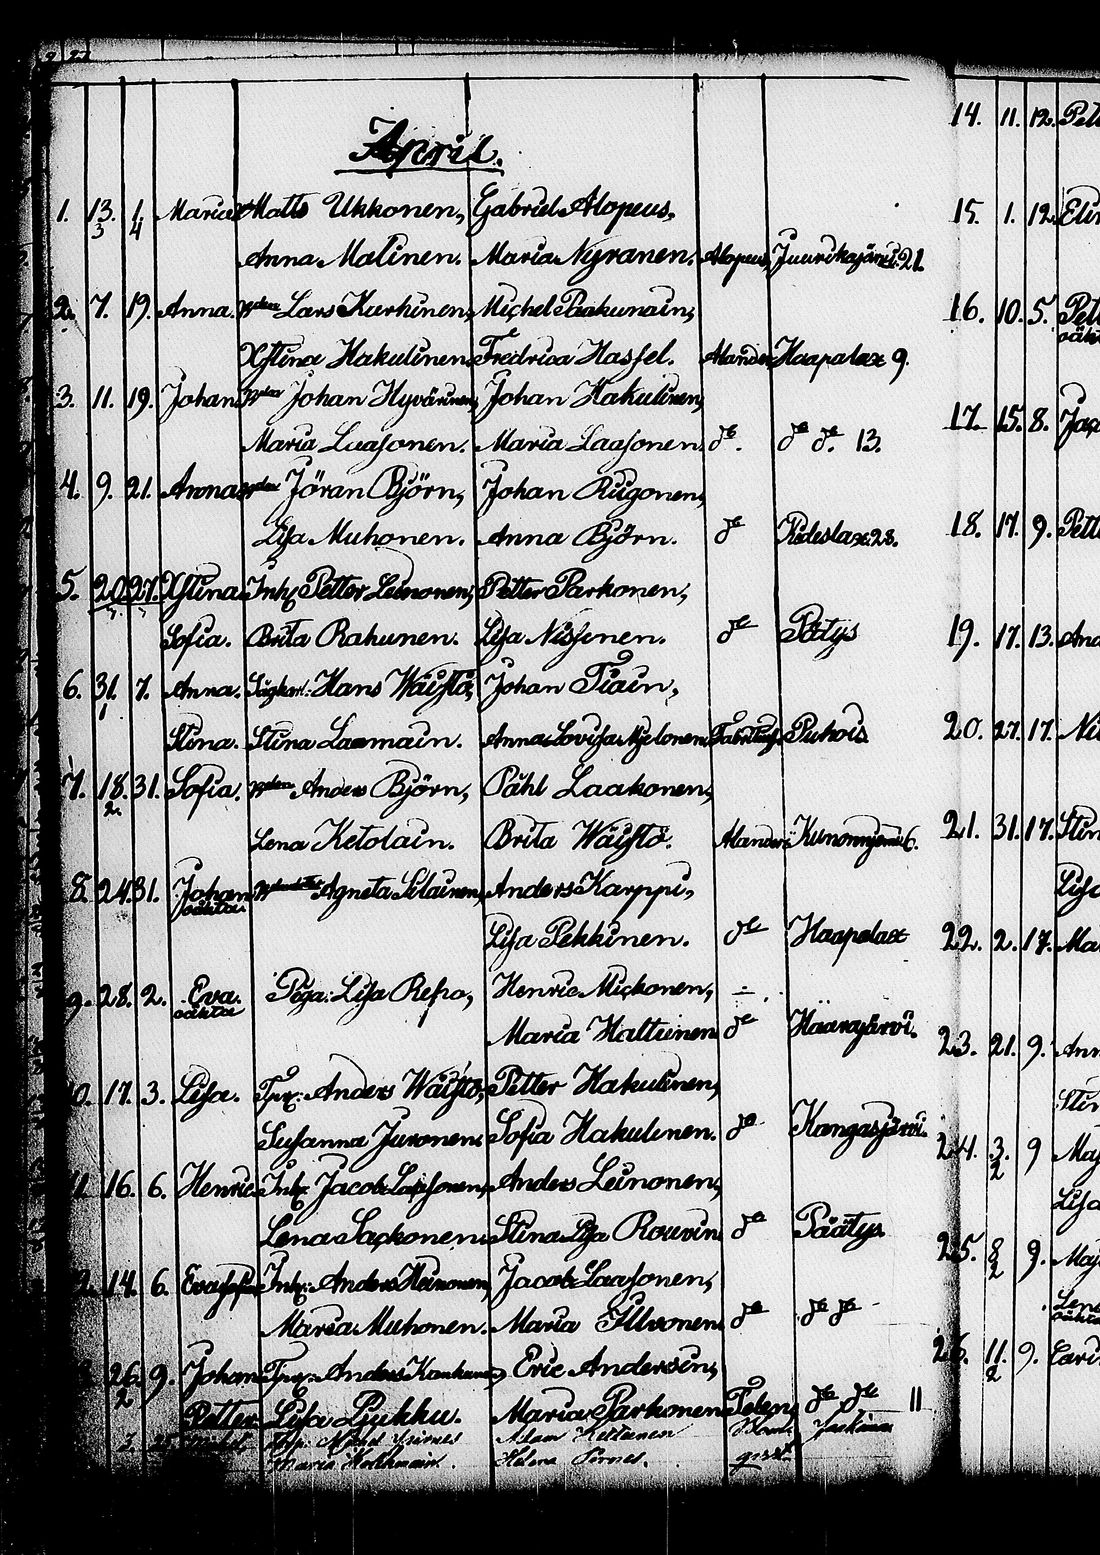 April.
1. 13/3 1/4 Maria Matts Ukkonen, Gabriel Alopeus,
Anna Malinen. Maria Nyranen. Alopeus, Juurikajärvi. 21.
2. 7. 19. Anna. Lars Kurhinen, Michel Paakunain,
Xstina Hakulinen. Fredrica Hassel. Alander Haapalax 9.
3. 11. 19. Johan Johan Hyvärinen, Johan Hakulinen,
Maria Laasonen. Maria Laasonen. do. do do 13.
4. 9. 21. Anna Jöran Björn, Johan Rugonen,
Lisa Muhonen. Anna Björn. do 28.
5. 20. 27. Xstina Inh. Petter Leinonen, Petter Parkonen,
Sofia. Brita Rahunen. Lisa Nissinen. do Pätys
6. 31/1 7. Anna. Hans Wäistö, Johan Tiain,
Stina. Stina Laamain. Anna Lovisa Puhois
7. 18/2. 31. Sofia. Anders Björn, Påhl Laakonen,
Lena Ketolain. Brita Wäistö. Alander Kunonniemi 6.
8. 24. 31. Johan Agneta Silainen, Anders Karppi,
oäkta
Lisa Pekkinen. do Haapalax
9. 28. 2. Eva. Piga: Lisa Repo, Henric Mickonen,
oäkta
Maria Haltunen do Häärajärvi.
10. 17. 3. Lisa. Tpr: Anders Wäistö, Petter Hakulinen,
Susanna Juronen Sofia Hakulinen. do Kangasjärvi.
11. 16. 6. Henric Inh. Jacob Laasonen, Anders Leinonen,
Lena Sackonen Stina Lisa Rouvin do Päätys.
12. 14. 6. Eva Sofia Inh. Anders Heinonen, Jacob Laasonen,
Maria Muhonen. Maria Illvonen do do do
13. 26/2 9. Johan Tpr: Anders Eric Andersin,
Petter Lisa Ljukku. Maria Parkonen do do 11
3. 25. Michel Adam Kettunen
Maria Helena Pirnes.
14. 11. 12. Pet
15. 1. 12. Elin
16. 10. 5. Pet
oäkt
17. 15. 8. Jac
18. 17. 9. Pett
19. 17. 13. And
20. 27. 17. Ni
21. 31. 17. Stin
Lisa
22. 2. 17. Ma
23. 21. 9. Ann
Stin
24. 3/2 9 Maj
Lisa
25. 8/2 9. Maj
Lena
oäkta
26. 11/2 9. Cari